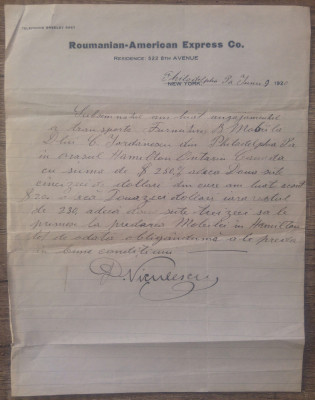 TELEPHONE BRYANT
Roumanian-American Express Co.
RESIDENCE 323 8TH AVENUE
Philadelphia Pa
NEW YORK,
Subsemnatul am luat angajamentul
a transporta Furnitura
D-lui C. Iordanescu din Philadelphia Pa
in orasul Hamilton Ontario Canada
cu suma de $ 250, adeca Doua sute
cinci zeci de dollars din care am luat acont
$ 20 adeca Douazeci dollars iara restul
de 230 adeca doua sute treizeci sa le
primesc la predarea Mobilei in Hamilton
tot de odata obligandumă a le preda
in bune conditiuni
Niculescu